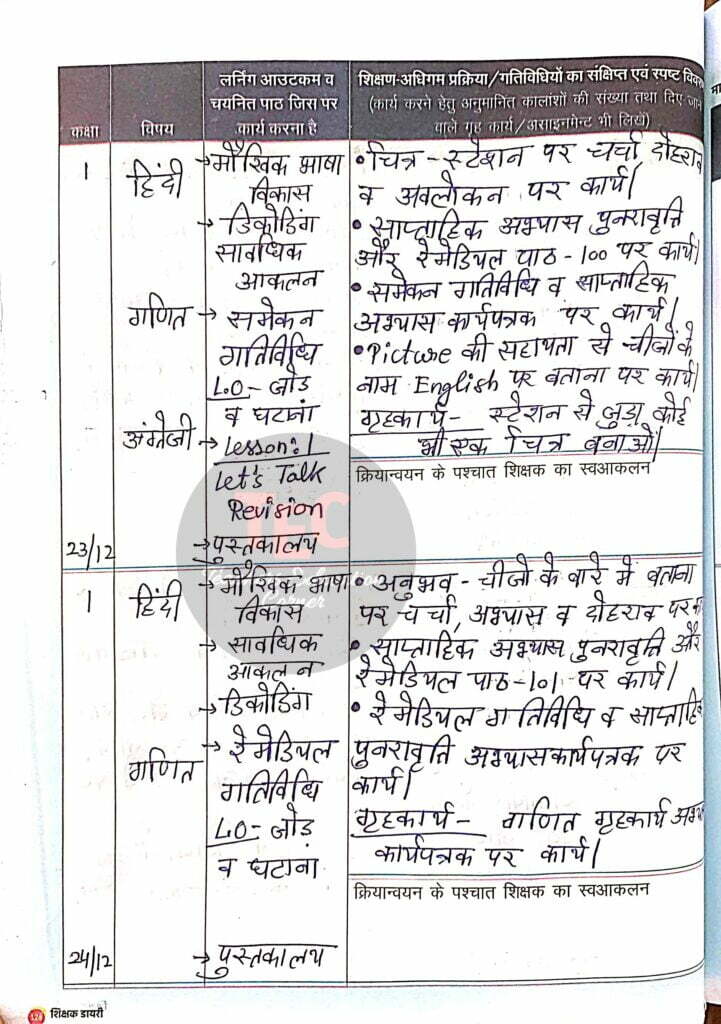 कक्षा
विषय
लर्निंग आउटकम व
चयनित पाठ जिस पर
कार्य करना है
शिक्षण-अधिगम प्रक्रिया/गतिविधियों का संक्षिप्त एवं स्पष्ट
(कार्य करने हेतु अनुमानित कालांशों की संख्या तथा दिए
वाले गृह कार्य/असाइनमेन्ट भी लिखें)
1
हिंदी
→ मौखिक भाषा
विकास
→ डिकोडिंग
सावधिक
आकलन
गणित
→ समेकन
गतिविधि
LO- जोड़
व घटाना
अंग्रेजी
→ Lesson: 1
Let's Talk
Revision
23/12
→ पुस्तकालय
• चित्र - स्टेशन पर चर्चा, दोहरान
व अवलोकन पर कार्य।
• साप्ताहिक अभ्यास पुनरावृत्ति
और रेमेडियल पाठ - 100 पर कार्य।
• समेकन गतिविधि व साप्ताहिक
अभ्यास कार्यपत्रक पर कार्य।
• Picture की सहायता से चीजों के
नाम English पर बताना पर कार्य।
गृहकार्य - स्टेशन से जुड़ा कोई
भी एक चित्र बनाओ।
क्रियान्वयन के पश्चात शिक्षक का स्वआकलन
TEC
Corner
1
हिंदी
→ मौखिक भाषा
विकास
→ सावधिक
आकलन
→ डिकोडिंग
गणित
→ रेमेडियल
गतिविधि
LO- जोड़
व घटाना
24/12
→ पुस्तकालय
• अनुभव - चीजो के बारे मे बताना
पर चर्चा, अभ्यास व दोहराव पर
• साप्ताहिक अभ्यास, पुनरावृत्ति और
रेमेडियल पाठ - 101 पर कार्य।
• रेमेडियल गतिविधि व साप्ताहि
पुनरावृत्ति अभ्यासकार्यपत्रक पर
कार्य।
गृहकार्य - गणित गृहकार्य
कार्यपत्रक पर कार्य।
क्रियान्वयन के पश्चात शिक्षक का स्वआकलन
शिक्षक डायरी